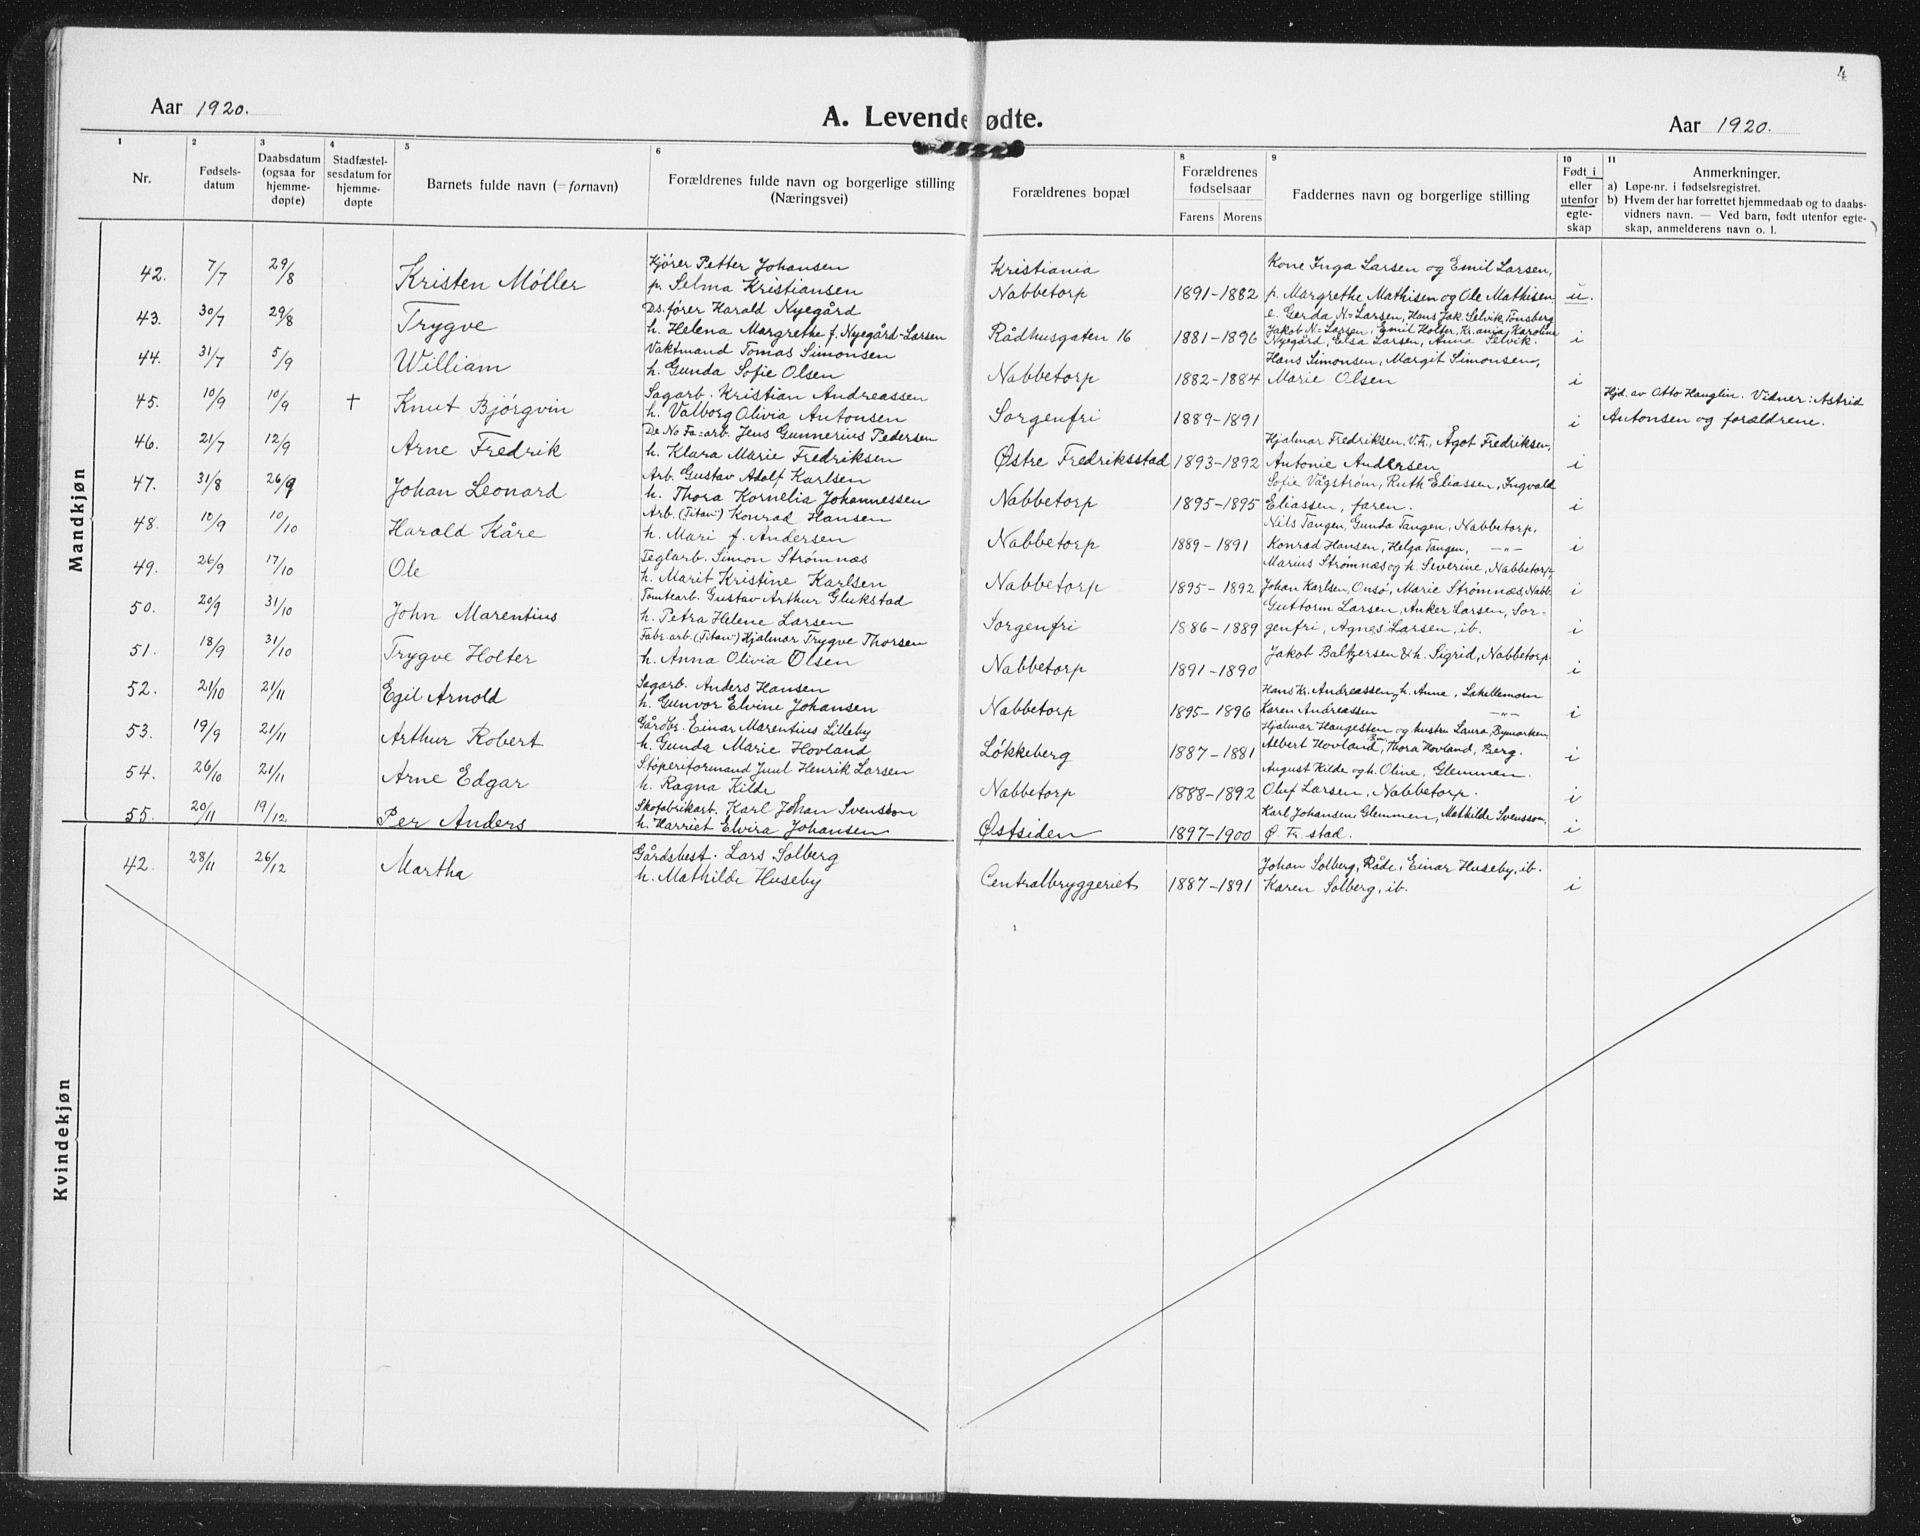 4
Aar 1920. A. Levendefødte. Aar 1920.
1 2 3 4 5 6 8 9 10 11
Nr. Fødselsdatum Daabsdatum (ogsaa for hjemmedøpte) Stadfæstelsesdatum for hjemmedøpte Barnets fulde navn (= fornavn) Forældrenes fulde navn og borgerlige stilling (Næringsvei) Forældrenes bopæl Forældrenes fødselsaar Farens Morens Faddernes navn og borgerlige stilling Født i eller utenfor egteskap Anmerkninger.
a) Løpe-nr. i fødselsregistret.
b) Hvem der har forrettet hjemmedaab og to daabsvidners navn. — Ved barn, født utenfor egteskap, anmelderens navn o. l.
Mandkjøn
42. 7/7 29/8 Kristen Møller Kjører Petter Johansen Kristiania Kone Inga Larsen og Emil Larsen,
p. Selma Kristiansen Nabbetorp 1891-1882 p. Margrethe Mathisen og Ole Mathisen u.
43. 30/7 29/8 Trygve Ds.fører Harald Nyegård e. Gerda N=Larsen, Hans Jak. Selvik, Tønsberg
h. Helena Margrethe f. Nyegård-Larsen Rådhusgaten 16 1881-1896 Jakob N=Larsen, Emil Holter, Kr.ania, Karoline Nyegård, Elsa Larsen, Anna Selvik. i
44. 31/7 5/9 William Vaktmand Tomas Simonsen Hans Simonsen, Margit Simonsen,
h. Gunda Sofie Olsen Nabbetorp 1882-1884 Marie Olsen i
45. 10/9 10/9 + Knut Bjørgvin Sagarb. Kristian Andreassen Hjd. av Otto Hauglin. Vidner: Astrid
h. Valborg Olivia Antonsen Sorgenfri 1889-1891 i Antonsen og forældrene.
46. 21/7 12/9 Arne Fredrik De No Fa=arb. Jens Gunnerius Pedersen Hjalmar Fredriksen, V.Fr., Ågot Fredriksen,
h. Klara Marie Fredriksen Østre Fredriksstad 1893-1892 Antonie Andersen i
47. 31/8 26/9 Johan Leonard Arb. Gustav Adolf Karlsen Sofie Vågstrøm, Ruth Eliassen, Ingvald
h. Thora Kornelia Johannessen Nabbetorp 1895-1895 Eliassen, faren. i
48. 10/9 10/10 Harald Kåre Arb. (Titan") Konrad Hansen Nils Tangen, Gunda Tangen, Nabbetorp,
h. Mari f. Andersen Nabbetorp 1889-1891 Konrad Hansen, Helga Tangen, -"- i
49. 26/9 17/10 Ole Teglarb. Simon Strømnæs Marius Strømnæs og h. Severine, Nabbetorp,
h. Marit Kristine Karlsen Nabbetorp 1895-1892 Johan Karlsen, Onsø, Marie Strømnæs, Nabb. i
50. 20/9 31/10 John Marentius Tomtearb. Gustav Arthur Glukstad Guttorm Larsen, Anker Larsen, Sor-
h. Petra Helene Larsen Sorgenfri 1886-1889 genfri, Agnes Larsen, ib. i
51. 18/9 31/10 Trygve Holter Fabr.arb. (Titan") Hjalmar Trygve Thorsen Jakob Baltzersen & h. Sigrid, Nabbetorp.
h. Anna Olivia Olsen Nabbetorp 1891-1890 i
52. 21/10 21/11 Egil Arnold Sagarb. Anders Hansen Hans Kr. Andreassen, h. Anne, Lahellemoen
h. Gunvor Elvine Johansen Nabbetorp 1895-1896 Karen Andreassen -"- i
53. 19/9 21/11 Arthur Robert Gårdbr. Einar Marentius Lilleby Hjalmar Haugesten og hustru Laura, Bymarken
h. Gunda Marie Hovland Løkkeberg 1887-1881 Albert Hovland, Thora Hovland, Berg. i
54. 26/10 21/11 Arne Edgar Støperiformand Juul Henrik Larsen August Kilde og h. Oline, Glemmen.
h. Ragna Kilde Nabbetorp 1888-1892 Oluf Larsen, Nabbetorp. i
55. 20/11 19/12 Per Anders Skofabrikarb. Karl Johan Svensson Karl Johansen, Glemmen, Mathilde Svensson,
h. Harriet Elvira Johansen Østsiden 1897-1900 Ø. Fr. stad. i
Kvindekjøn
42. 28/11 26/12 Martha Gårdsbest. Lars Solberg Johan Solberg, Råde, Einar Huseby, ib.
h. Mathilde Huseby Centralbryggeriet 1887-1891 Karen Solberg, ib. i